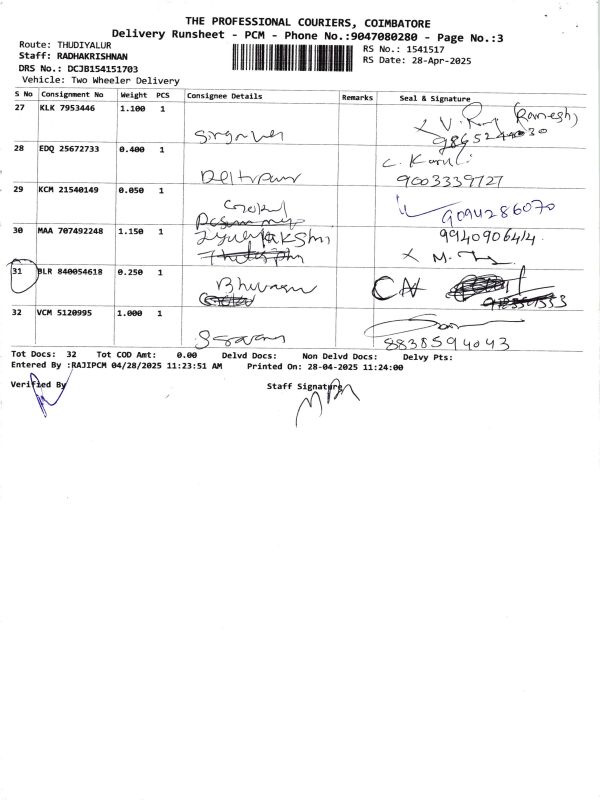 THE PROFESSIONAL COURIERS, COIMBATORE
Delivery Runsheet - PCM - Phone No.:9047080280 - Page No.:3
Route: THUDIYALUR
Staff: RADHAKRISHNAN
DRS No.: DCJB154151703
Vehicle: Two Wheeler Delivery
RS No.: 1541517
RS Date: 28-Apr-2025
S No Consignment No Weight PCS Consignee Details Remarks Seal & Signature
27 KLK 7953446 1.100 1 (Ramesh)
28 EDQ 25672733 0.400 1
9003339727
29 KCM 21540149 0.050 1 Gokul 9094286070
30 MAA 707492248 1.150 1 9940906414
31 BLR 840054618 0.250 1 CN
32 VCM 5120995 1.000 1
8838594043
Tot Docs: 32 Tot COD Amt: 0.00 Delvd Docs: Non Delvd Docs: Delvy Pts:
Entered By :RAJIPCM 04/28/2025 11:23:51 AM Printed On: 28-04-2025 11:24:00
Verified By Staff Signature